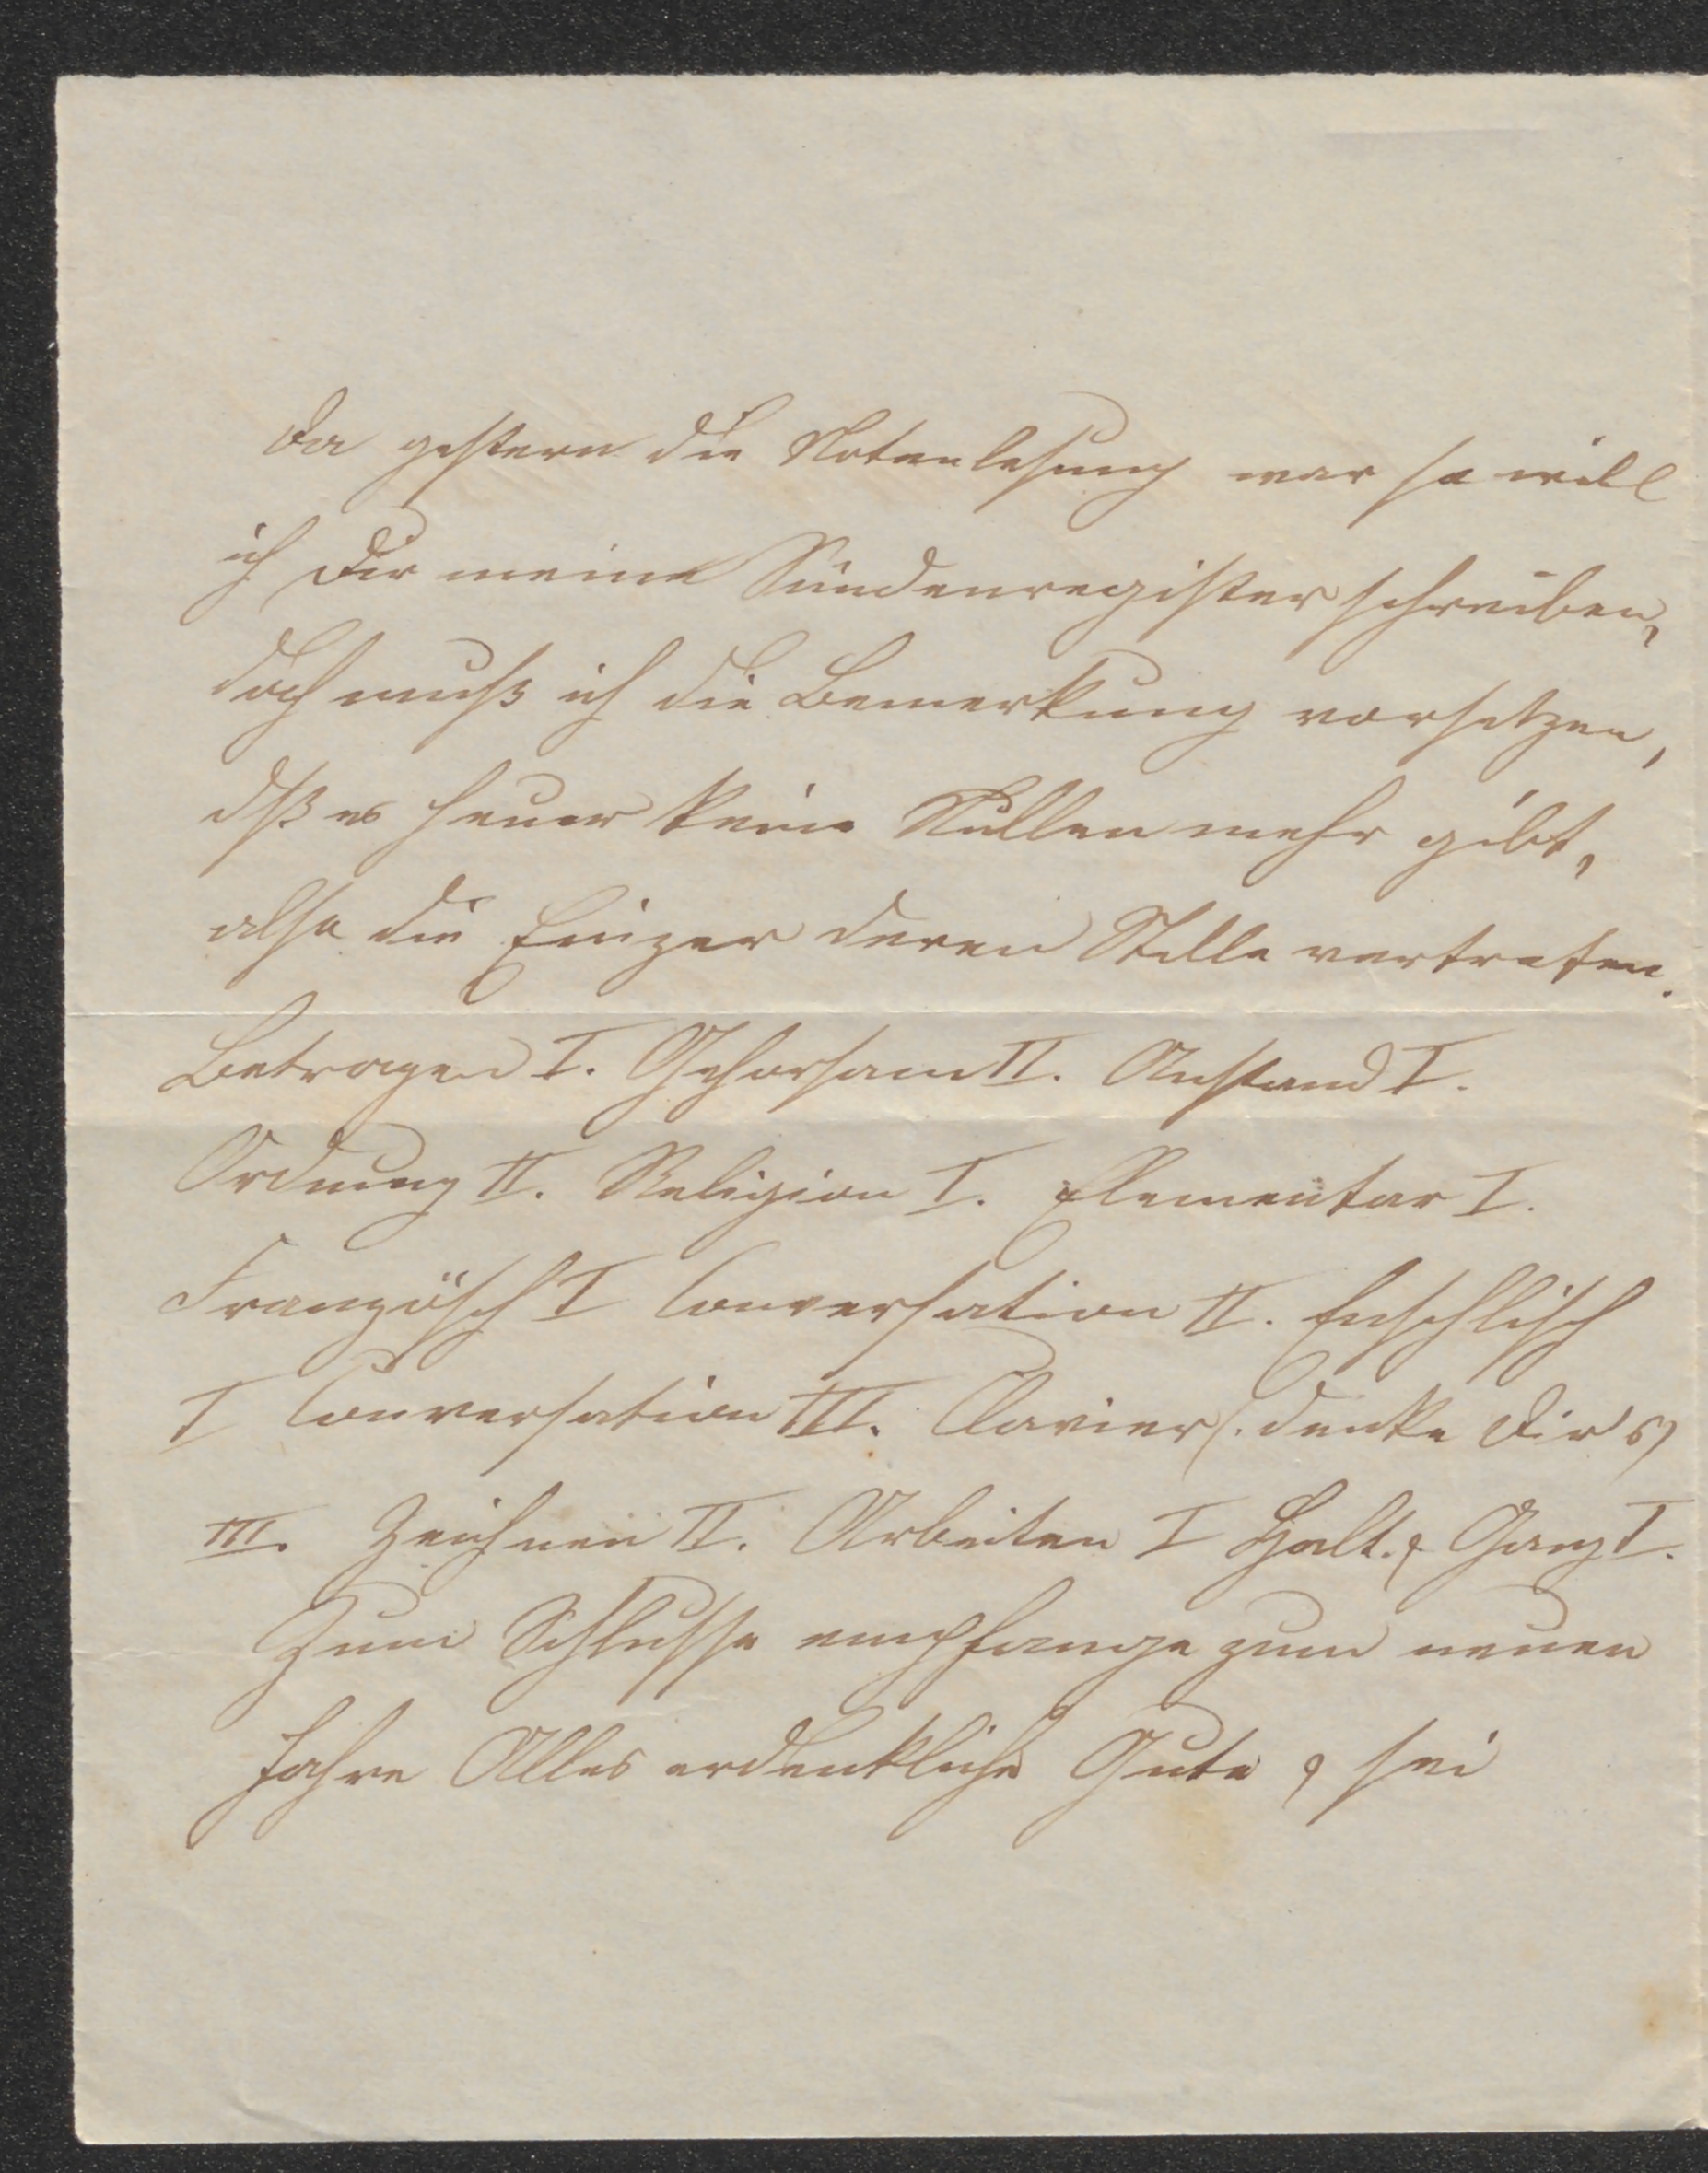 Da gestern die Notenlesung war so will
ich Dir meine Sündenregister schreiben,
doch muß ich die Bemerkung vorsetzen,
dß es heuer keine Nullen mehr gibt,
also die Einzer deren Stelle vertreten.
Betragen I. Gehorsam II. Anstand I.
Ordnung II. Religion I. Elementar I.
Französch I Conversation II. Enschlisch
I Conversation III. Clavier (: denke Dir's)
III. Zeichnen II. Arbeiten I Halt. & Gang I.
Zum Schlusse empfange zum neuen
Jahre Alles erdenkliche Gute & sei